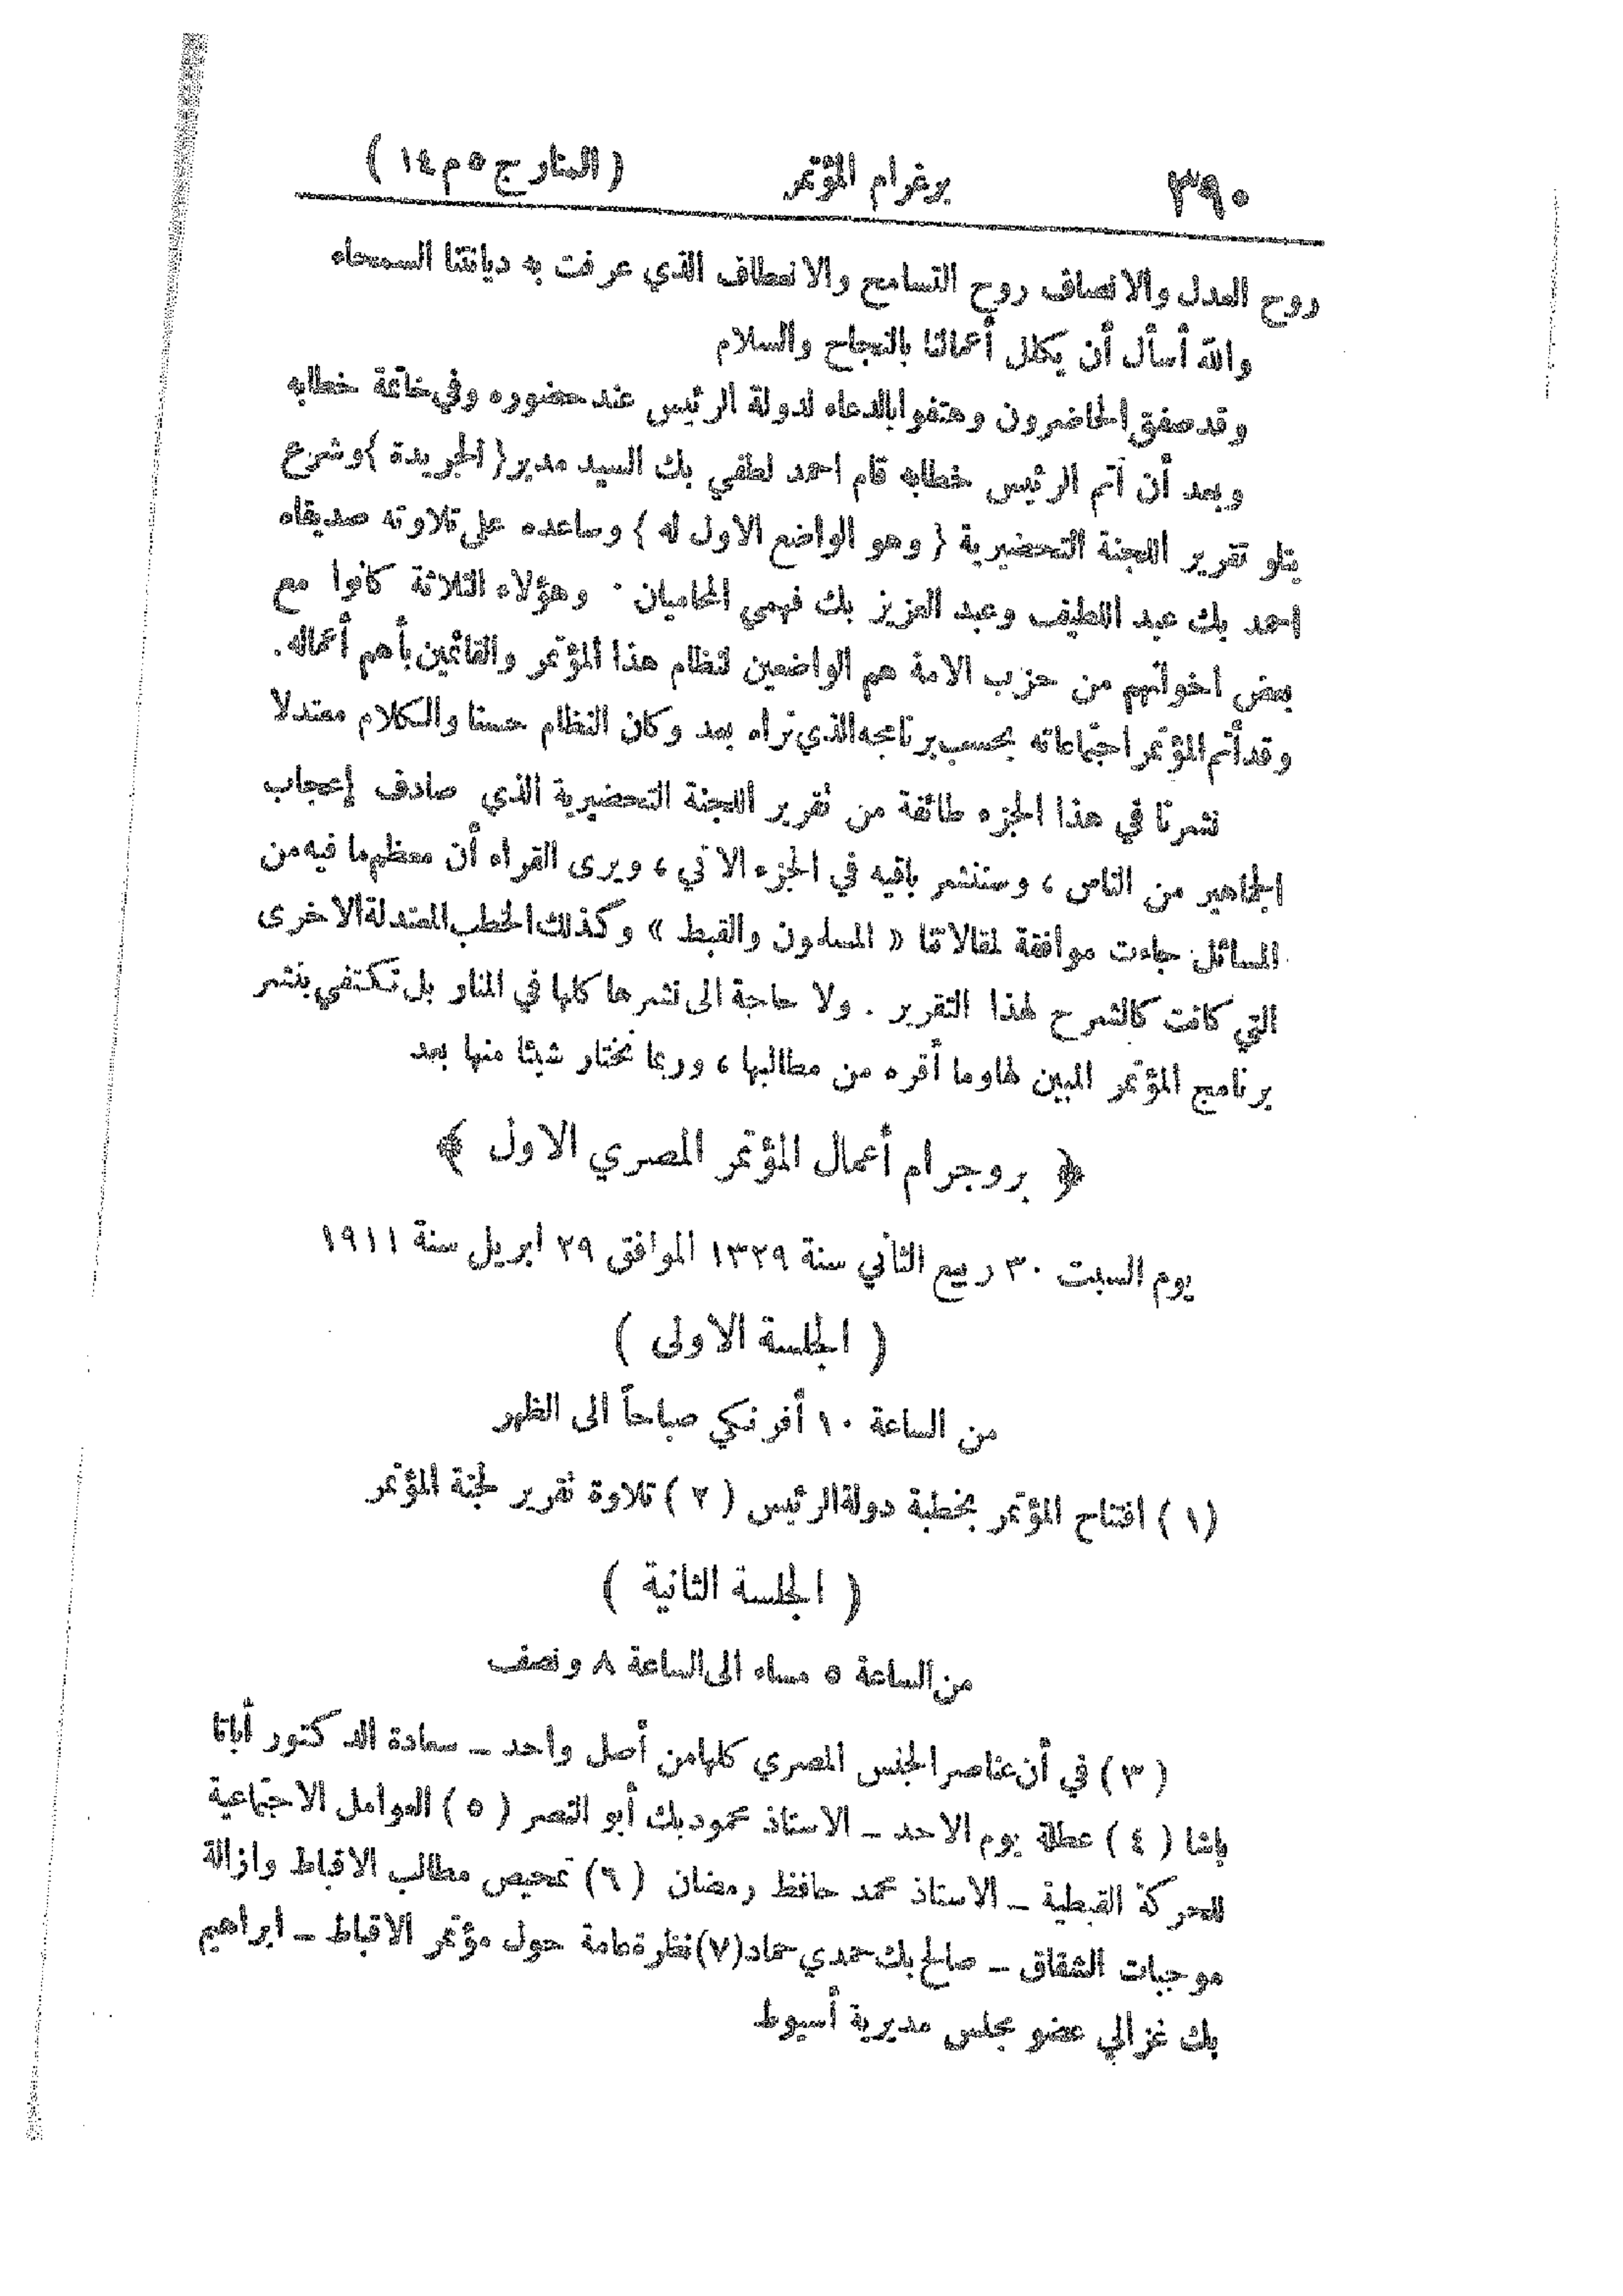 ٣٩٠ برغرام المؤتمر ( المنار ج ٥ م ١٤ )
روح العدل والانصاف روح التسامح والانعطاف الذي عرفت به ديانتنا السمحاء
والله أسأل أن يكلل أعمالنا بالنجاح والسلام
وقد صفق الحاضرون وهتفوا بالدعاء لدولة الرئيس عند حضوره وفي خاتمة خطابه
وبعد أن أتم الرئيس خطابه قام احمد لطفي بك السيد مدير ( الجريدة ) وشرع
يتلو تقرير اللجنة التحضيرية ( وهو الواضع الاول له ) وساعده على تلاوته صديقاه
احمد بك عبد اللطيف وعبد العزيز بك فهمي المحاميان . وهؤلاء الثلاثة كانوا مع
بعض اخوانهم من حزب الامة هم الواضعين لنظام هذا المؤتمر والقائمين بأهم أعماله .
وقد أتم المؤتمر اجتماعاته بحسب برنامجه الذي تراه بعد وكان النظام حسنا والكلام معتدلا
نشرنا في هذا الجزء طائفة من تقرير اللجنة التحضيرية الذي صادف إعجاب
الجماهير من الناس ، وسننشر باقيه في الجزء الآتي ، ويرى القراء أن معظم ما فيه من
المسائل جاءت موافقة لمقالاتنا « المسلمون والقبط » وكذلك الخطب المعتدلة الاخرى
التي كانت كالشرح لهذا التقرير . ولا حاجة الى نشرها كلها في المنار بل نكتفي بنشر
برنامج المؤتمر المبين لها وما أقره من مطالبها ، وربما نختار شيئا منها بعد
﴿ بروجرام أعمال المؤتمر المصري الاول ﴾
يوم السبت ٣٠ ربيع الثاني سنة ١٣٢٩ الموافق ٢٩ ابريل سنة ١٩١١
( الجلسة الاولى )
من الساعة ١٠ أفرنكي صباحاً الى الظهر
( ١ ) افتتاح المؤتمر بخطبة دولة الرئيس ( ٢ ) تلاوة تقرير لجنة المؤتمر
( الجلسة الثانية )
من الساعة ٥ مساء الى الساعة ٨ ونصف
( ٣ ) في أن عناصر الجنس المصري كلها من أصل واحد – سعادة الدكتور أباتا
باشا ( ٤ ) عطلة يوم الاحد – الاستاذ محمود بك أبو النصر ( ٥ ) العوامل الاجتماعية
للحركة القبطية – الاستاذ محمد حافظ رمضان ( ٦ ) تمحيص مطالب الاقباط وازالة
موجبات الشقاق – صالح بك حمدي حماد ( ٧ ) نظرة عامة حول مؤتمر الاقباط – ابراهيم
بك غزالي عضو مجلس مديرية أسيوط